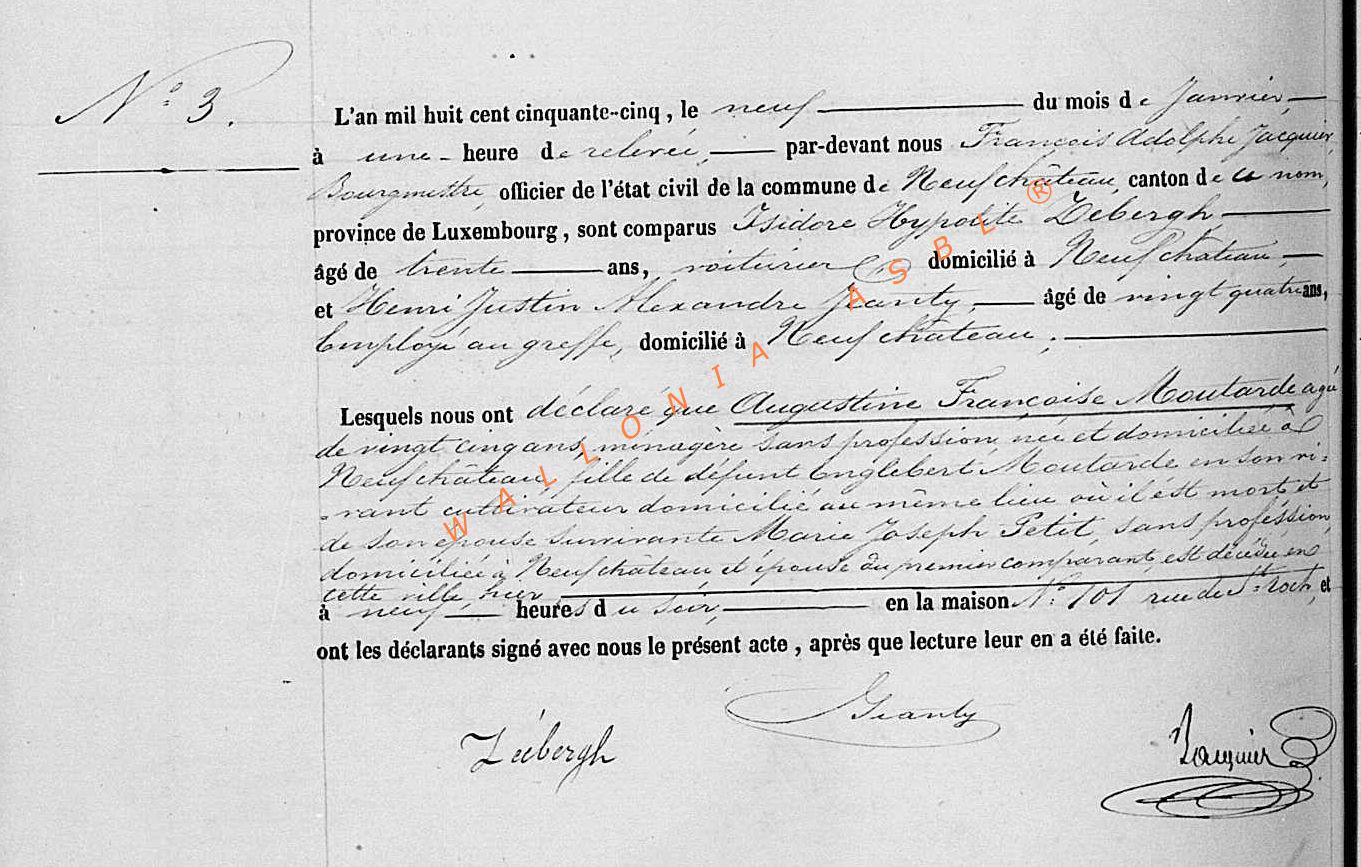 N.° 3.
L'an mil huit cent cinquante-cinq, le neuf du mois de Janvier,
à une heure de relevée, par-devant nous François Adolphe Jacquier,
Bourgmestre, officier de l'état civil de la commune de Neufchâteau, canton de ce nom,
province de Luxembourg, sont comparus Isidore Hypolite Zebergh,
âgé de trente ans, voiturier domicilié à Neufchâteau,
et Henri Justin Alexandre Jeanty, âgé de vingt quatre ans,
Employé au greffe, domicilié à Neufchâteau;
Lesquels nous ont déclaré que Augustine Françoise Moutarde agée
de vingt cinq ans, ménagère sans profession, née et domiciliée à
Neufchâteau, fille de défunt Englebert Moutarde en son vi-
-vant cultivateur domicilié au même lieu où il est mort et
de son épouse survivante Marie Joseph Petit, sans profession,
domiciliée à Neufchâteau et épouse du premier comparant est décédée en
cette ville, hier,
à neuf heures du soir, en la maison N.° 101 rue de St. roch, et
ont les déclarants signé avec nous le présent acte, après que lecture leur en a été faite.
Zébergh
Jeanty
Jacquier
WALLONIA ASBL ®